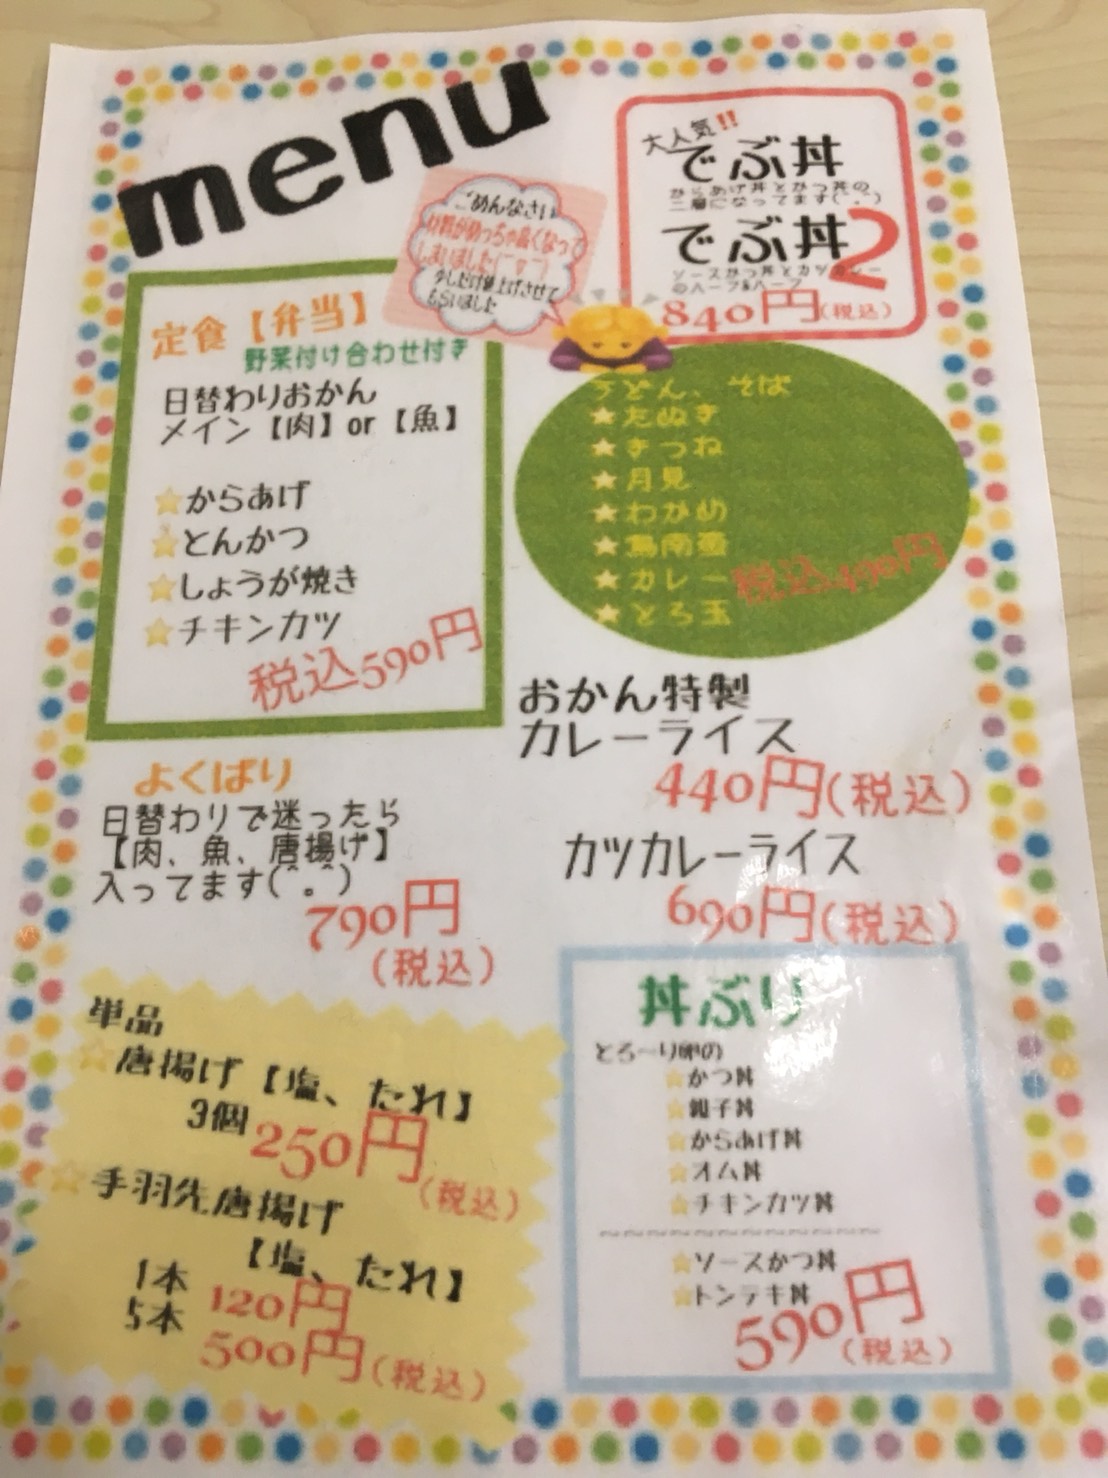 menu
ごめんなさい
材料がめっちゃ高くなって
しまいました(¯▽¯)
少しだけ値上げさせて
もらいました
大人気!!
でぶ丼
からあげ丼とかつ丼の
二層になってます(^。^)
でぶ丼2
ソースかつ丼とカツカレー
のハーフ&ハーフ
840円(税込)
定食【弁当】
野菜付け合わせ付き
日替わりおかん
メイン【肉】or【魚】
☆からあげ
☆とんかつ
☆しょうが焼き
☆チキンカツ
税込590円
うどん、そば
★たぬき
★きつね
★月見
★わかめ
★鳥南蛮
★カレー
★とろ玉
税込490円
おかん特製
カレーライス
440円(税込)
カツカレーライス
690円(税込)
よくばり
日替わりで迷ったら
【肉、魚、唐揚げ】
入ってます(^。^)
790円
(税込)
単品
☆唐揚げ【塩、たれ】
3個 250円
(税込)
☆手羽先唐揚げ
【塩、たれ】
1本 120円
5本 500円(税込)
丼ぶり
とろ〜り卵の
☆かつ丼
☆親子丼
☆からあげ丼
☆オム丼
☆チキンカツ丼
☆ソースかつ丼
☆トンテキ丼
590円
(税込)